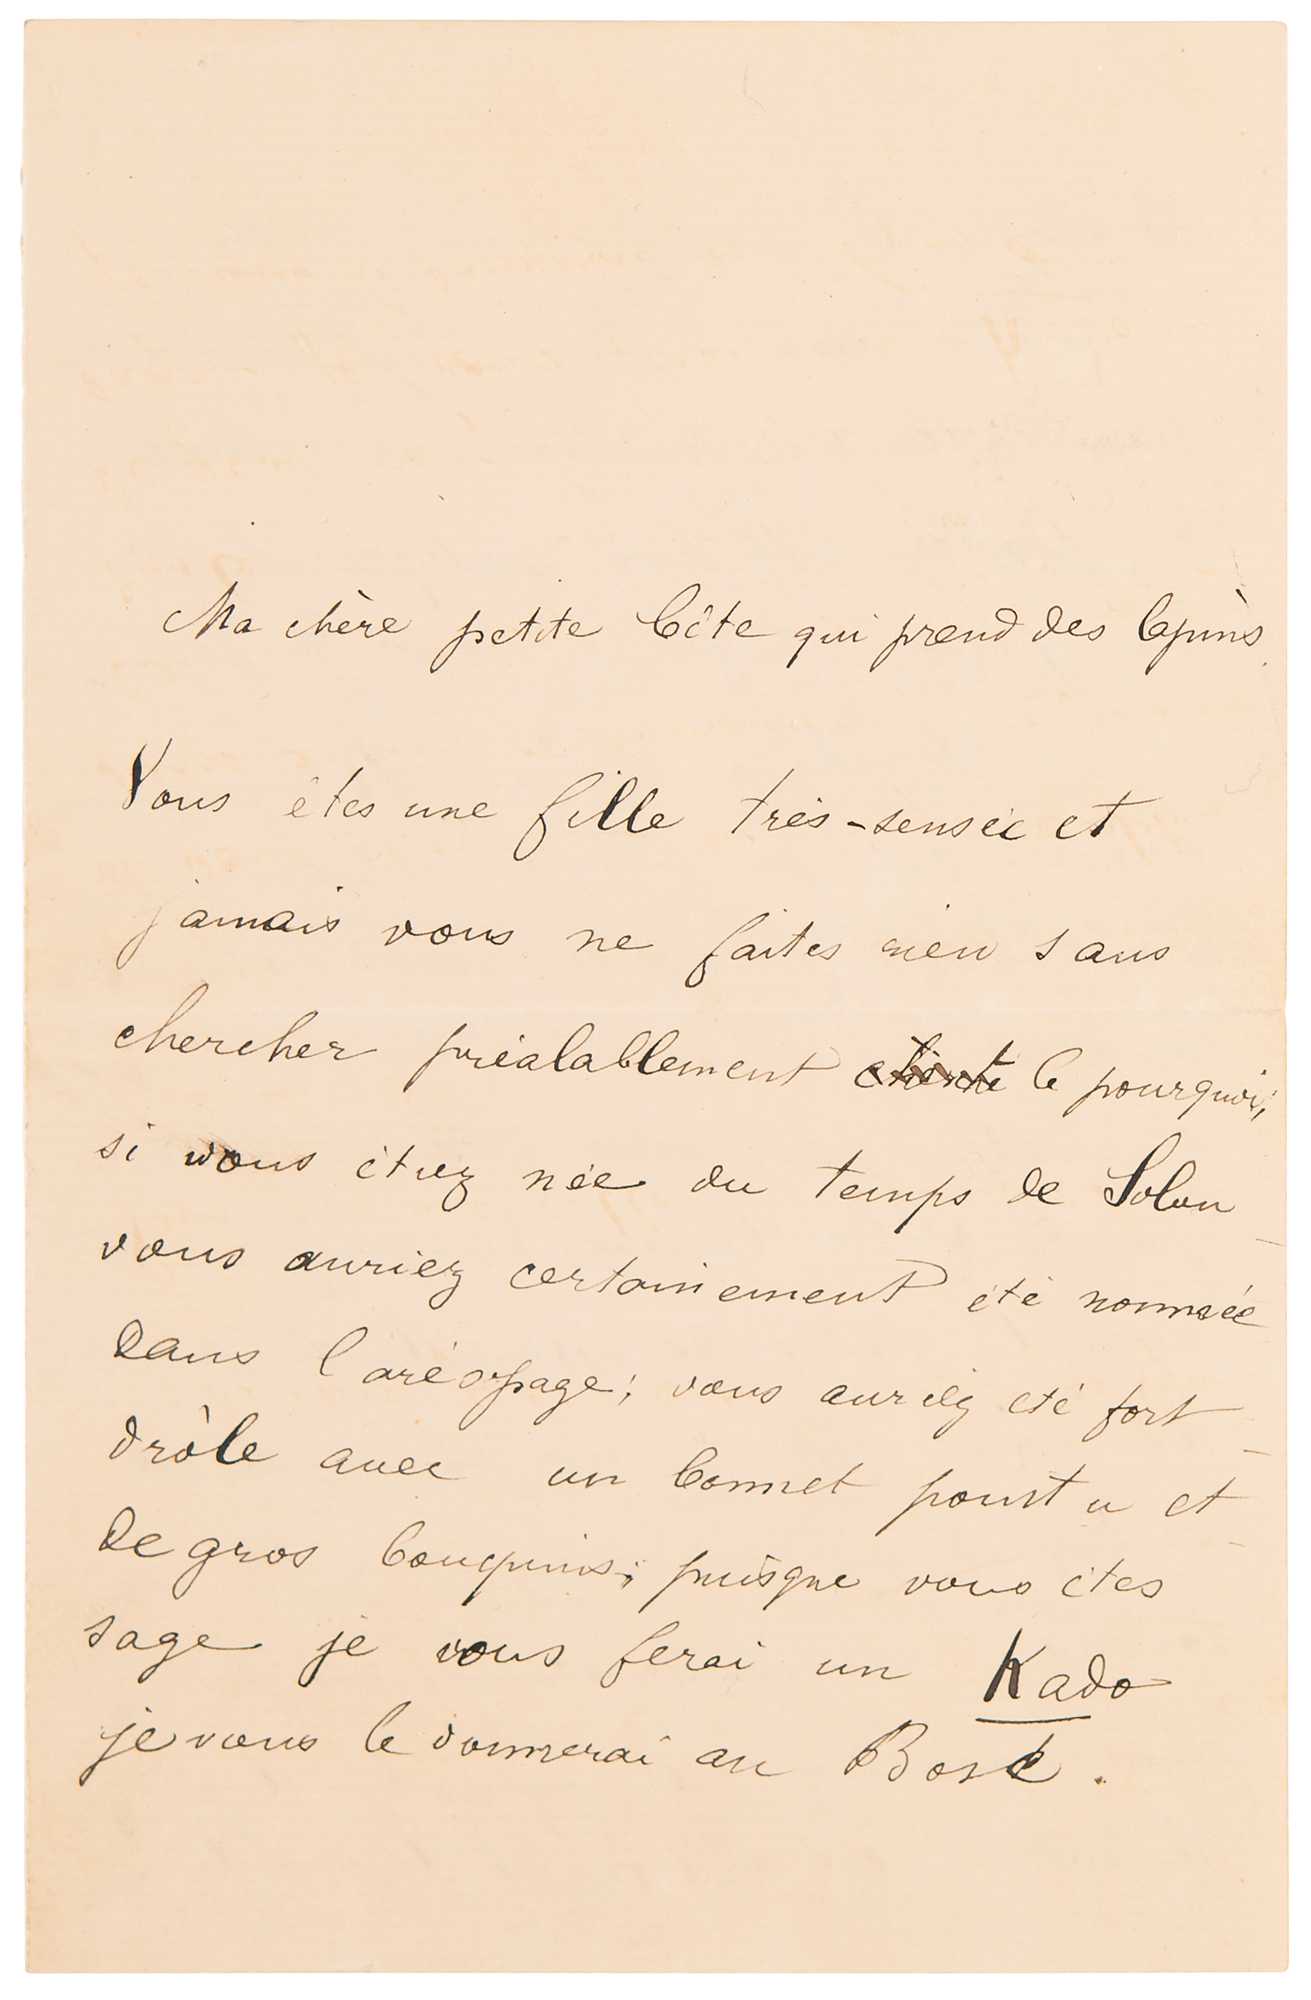 Ma chère petite bête qui prend des lapins
Vous êtes une fille très-sensée et
jamais vous ne faites rien sans
chercher préalablement le pourquoi;
si vous étiez née du temps de Solon
vous auriez certainement été nommée
dans l'aréopage; vous auriez été fort
drôle avec un bonnet pointu et
de gros bouquins; puisque vous êtes
sage je vous ferai un Kado
je vous le donnerai au Bosc.